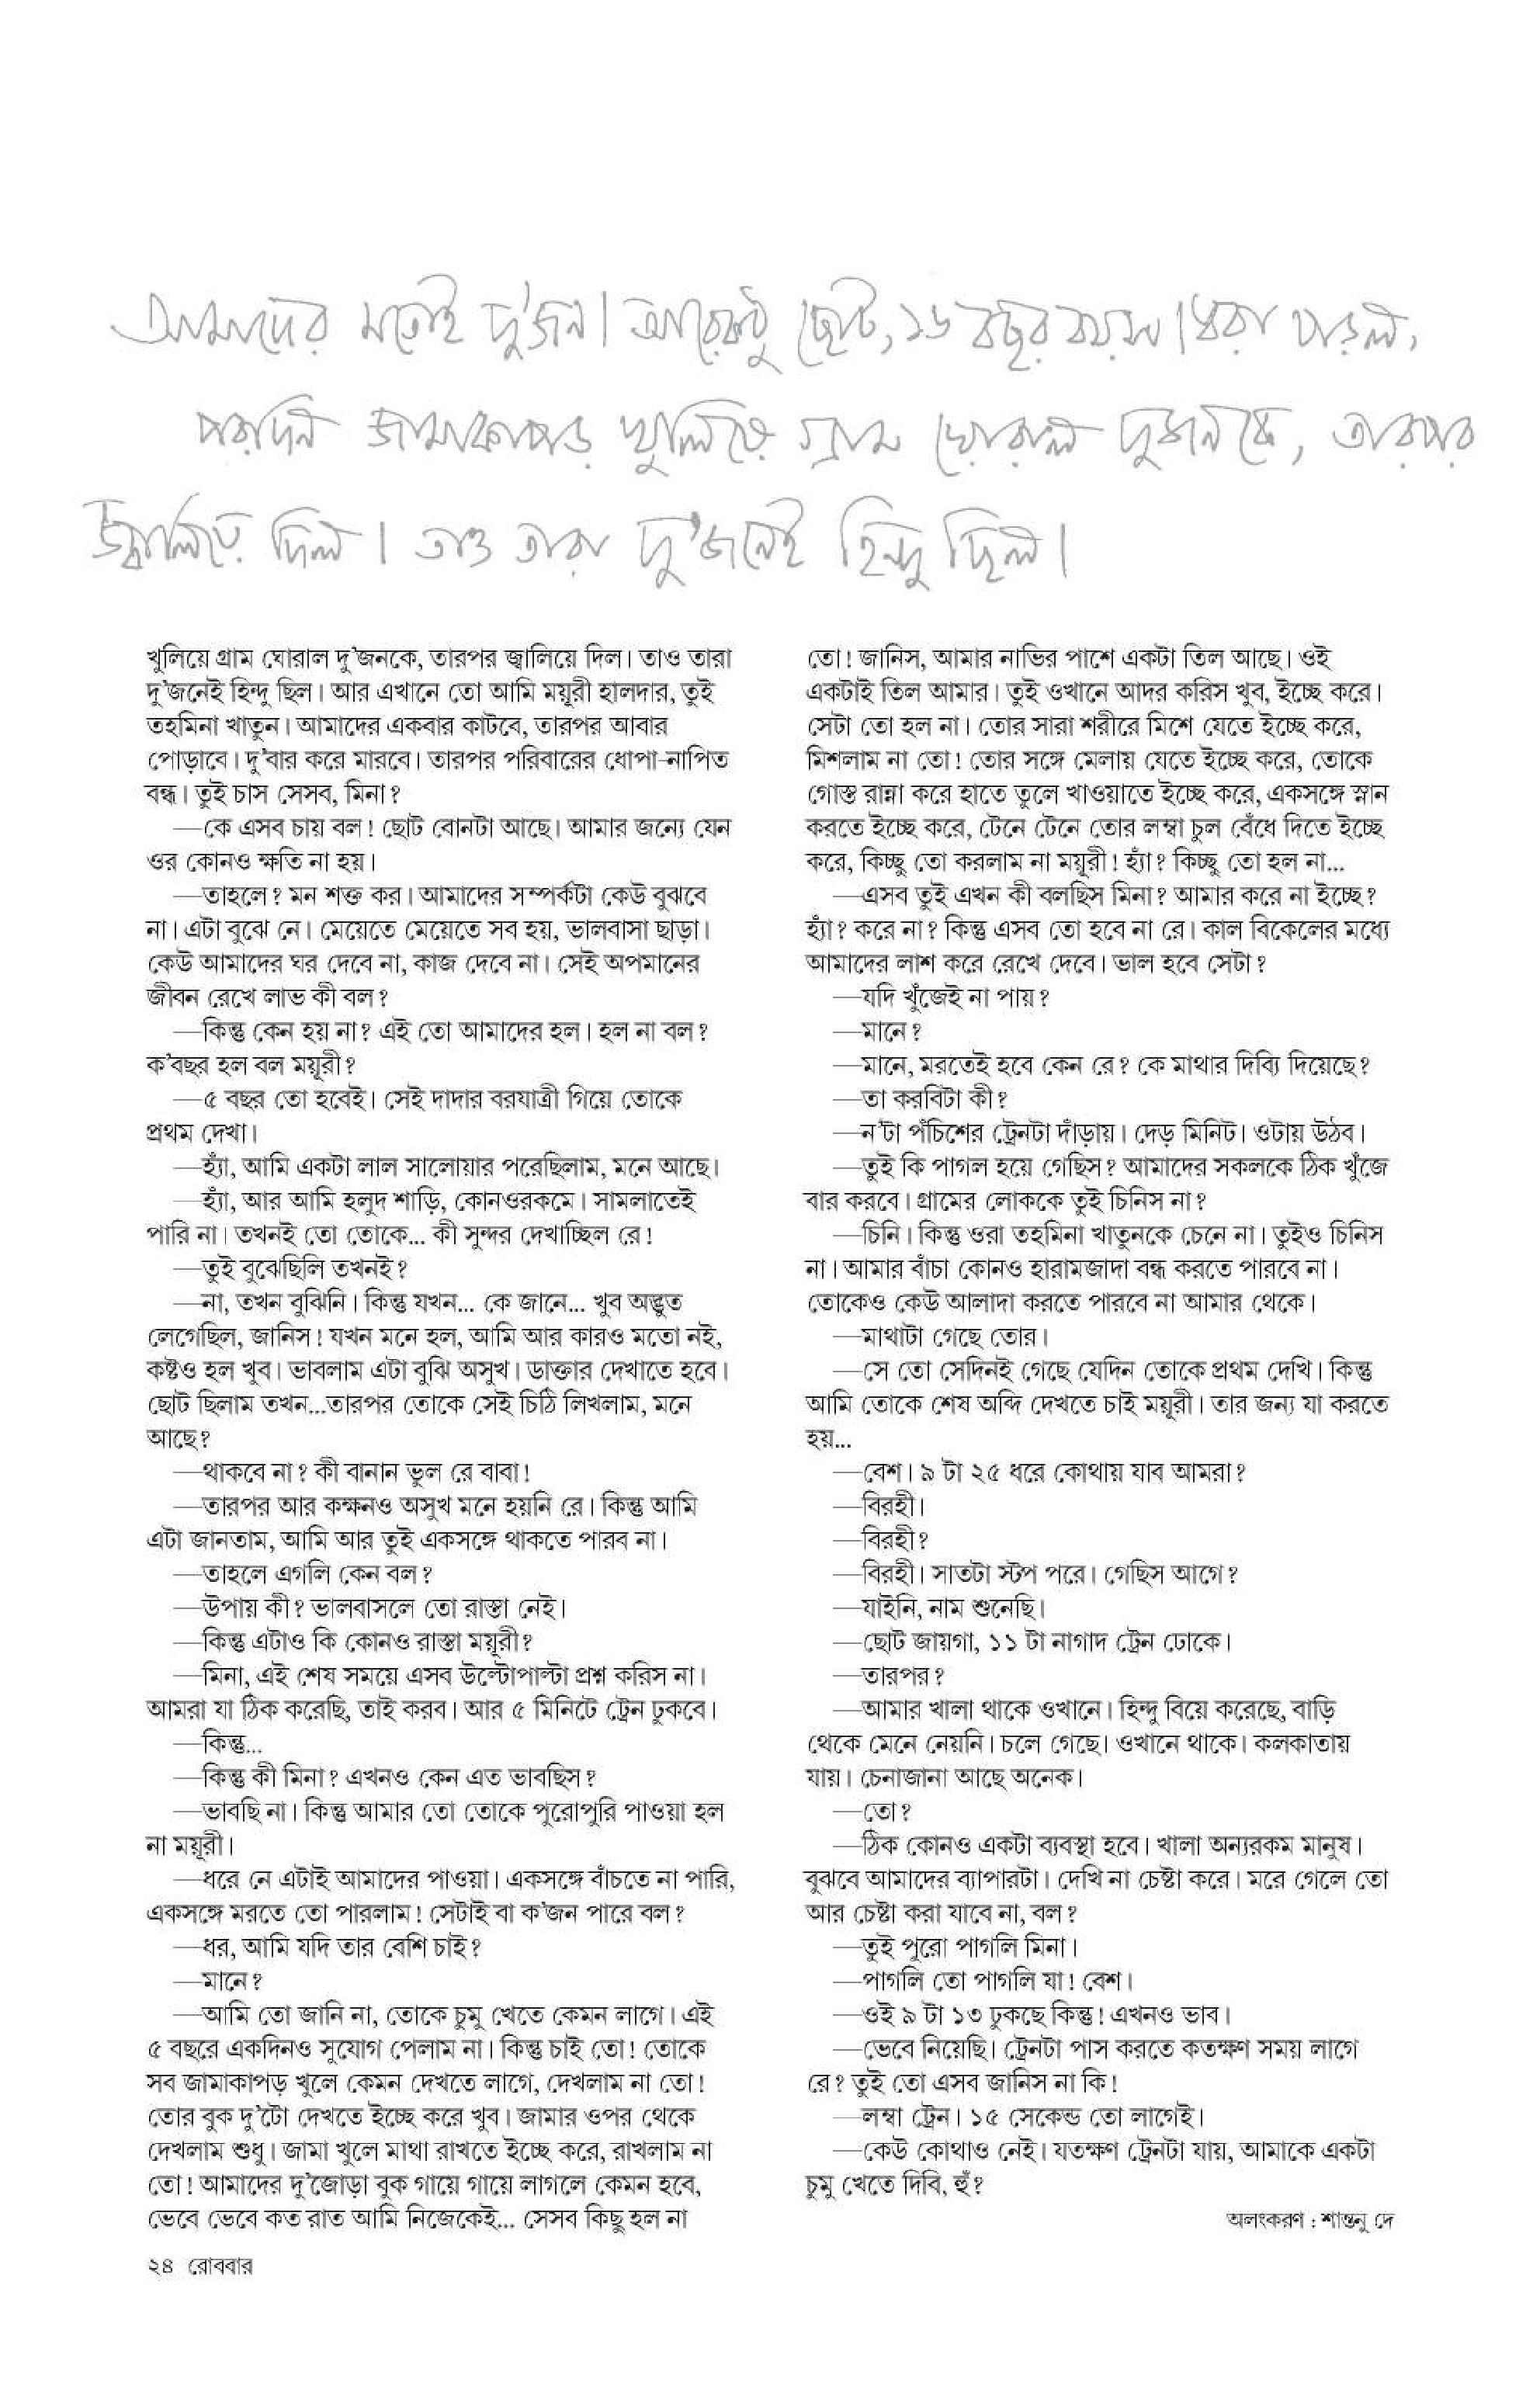 আমাদের মতোই দু'জন। আরেকটু ছোট, ১৬ বছর বয়স। ধরা পড়ল,
পরদিন জামাকাপড় খুলিয়ে গ্রাম ঘোরাল দুজনকে, তারপর
জ্বালিয়ে দিল। তাও তারা দু'জনেই হিন্দু ছিল।
খুলিয়ে গ্রাম ঘোরাল দু'জনকে, তারপর জ্বালিয়ে দিল। তাও তারা
দু'জনেই হিন্দু ছিল। আর এখানে তো আমি ময়ূরী হালদার, তুই
তহমিনা খাতুন। আমাদের একবার কাটবে, তারপর আবার
পোড়াবে। দু'বার করে মারবে। তারপর পরিবারের ধোপা-নাপিত
বন্ধ। তুই চাস সেসব, মিনা?
—কে এসব চায় বল! ছোট বোনটা আছে। আমার জন্যে যেন
ওর কোনও ক্ষতি না হয়।
—তাহলে? মন শক্ত কর। আমাদের সম্পর্কটা কেউ বুঝবে
না। এটা বুঝে নে। মেয়েতে মেয়েতে সব হয়, ভালবাসা ছাড়া।
কেউ আমাদের ঘর দেবে না, কাজ দেবে না। সেই অপমানের
জীবন রেখে লাভ কী বল?
—কিন্তু কেন হয় না? এই তো আমাদের হল। হল না বল?
ক'বছর হল বল ময়ূরী?
—৫ বছর তো হবেই। সেই দাদার বরযাত্রী গিয়ে তোকে
প্রথম দেখা।
—হ্যাঁ, আমি একটা লাল সালোয়ার পরেছিলাম, মনে আছে।
—হ্যাঁ, আর আমি হলুদ শাড়ি, কোনওরকমে। সামলাতেই
পারি না। তখনই তো তোকে... কী সুন্দর দেখাচ্ছিল রে!
—তুই বুঝেছিলি তখনই?
—না, তখন বুঝিনি। কিন্তু যখন... কে জানে... খুব অদ্ভুত
লেগেছিল, জানিস! যখন মনে হল, আমি আর কারও মতো নই,
কষ্টও হল খুব। ভাবলাম এটা বুঝি অসুখ। ডাক্তার দেখাতে হবে।
ছোট ছিলাম তখন...তারপর তোকে সেই চিঠি লিখলাম, মনে
আছে?
—থাকবে না? কী বানান ভুল রে বাবা!
—তারপর আর কক্ষনও অসুখ মনে হয়নি রে। কিন্তু আমি
এটা জানতাম, আমি আর তুই একসঙ্গে থাকতে পারব না।
—তাহলে এগলি কেন বল?
—উপায় কী? ভালবাসলে তো রাস্তা নেই।
—কিন্তু এটাও কি কোনও রাস্তা ময়ূরী?
—মিনা, এই শেষ সময়ে এসব উল্টোপাল্টা প্রশ্ন করিস না।
আমরা যা ঠিক করেছি, তাই করব। আর ৫ মিনিটে ট্রেন ঢুকবে।
—কিন্তু...
—কিন্তু কী মিনা? এখনও কেন এত ভাবছিস?
—ভাবছি না। কিন্তু আমার তো তোকে পুরোপুরি পাওয়া হল
না ময়ূরী।
—ধরে নে এটাই আমাদের পাওয়া। একসঙ্গে বাঁচতে না পারি,
একসঙ্গে মরতে তো পারলাম! সেটাই বা ক'জন পারে বল?
—ধর, আমি যদি তার বেশি চাই?
—মানে?
—আমি তো জানি না, তোকে চুমু খেতে কেমন লাগে। এই
৫ বছরে একদিনও সুযোগ পেলাম না। কিন্তু চাই তো! তোকে
সব জামাকাপড় খুলে কেমন দেখতে লাগে, দেখলাম না তো!
তোর বুক দু'টো দেখতে ইচ্ছে করে খুব। জামার ওপর থেকে
দেখলাম শুধু। জামা খুলে মাথা রাখতে ইচ্ছে করে, রাখলাম না
তো! আমাদের দু'জোড়া বুক গায়ে গায়ে লাগলে কেমন হবে,
ভেবে ভেবে কত রাত আমি নিজেকেই... সেসব কিছু হল না
তো! জানিস, আমার নাভির পাশে একটা তিল আছে। ওই
একটাই তিল আমার। তুই ওখানে আদর করিস খুব, ইচ্ছে করে।
সেটা তো হল না। তোর সারা শরীরে মিশে যেতে ইচ্ছে করে,
মিশলাম না তো! তোর সঙ্গে মেলায় যেতে ইচ্ছে করে, তোকে
গোস্ত রান্না করে হাতে তুলে খাওয়াতে ইচ্ছে করে, একসঙ্গে স্নান
করতে ইচ্ছে করে, টেনে টেনে তোর লম্বা চুল বেঁধে দিতে ইচ্ছে
করে, কিচ্ছু তো করলাম না ময়ূরী! হ্যাঁ? কিচ্ছু তো হল না...
—এসব তুই এখন কী বলছিস মিনা? আমার করে না ইচ্ছে?
হ্যাঁ? করে না? কিন্তু এসব তো হবে না রে। কাল বিকেলের মধ্যে
আমাদের লাশ করে রেখে দেবে। ভাল হবে সেটা?
—যদি খুঁজেই না পায়?
—মানে?
—মানে, মরতেই হবে কেন রে? কে মাথার দিব্যি দিয়েছে?
—তা করবিটা কী?
—ন'টা পঁচিশের ট্রেনটা দাঁড়ায়। দেড় মিনিট। ওটায় উঠব।
—তুই কি পাগল হয়ে গেছিস? আমাদের সকলকে ঠিক খুঁজে
বার করবে। গ্রামের লোককে তুই চিনিস না?
—চিনি। কিন্তু ওরা তহমিনা খাতুনকে চেনে না। তুইও চিনিস
না। আমার বাঁচা কোনও হারামজাদা বন্ধ করতে পারবে না।
তোকেও কেউ আলাদা করতে পারবে না আমার থেকে।
—মাথাটা গেছে তোর।
—সে তো সেদিনই গেছে যেদিন তোকে প্রথম দেখি। কিন্তু
আমি তোকে শেষ অব্দি দেখতে চাই ময়ূরী। তার জন্য যা করতে
হয়...
—বেশ। ৯ টা ২৫ ধরে কোথায় যাব আমরা?
—বিরহী।
—বিরহী?
—বিরহী। সাতটা স্টপ পরে। গেছিস আগে?
—যাইনি, নাম শুনেছি।
—ছোট জায়গা, ১১ টা নাগাদ ট্রেন ঢোকে।
—তারপর?
—আমার খালা থাকে ওখানে। হিন্দু বিয়ে করেছে, বাড়ি
থেকে মেনে নেয়নি। চলে গেছে। ওখানে থাকে। কলকাতায়
যায়। চেনাজানা আছে অনেক।
—তো?
—ঠিক কোনও একটা ব্যবস্থা হবে। খালা অন্যরকম মানুষ।
বুঝবে আমাদের ব্যাপারটা। দেখি না চেষ্টা করে। মরে গেলে তো
আর চেষ্টা করা যাবে না, বল?
—তুই পুরো পাগলি মিনা।
—পাগলি তো পাগলি যা! বেশ।
—ওই ৯ টা ১৩ ঢুকছে কিন্তু! এখনও ভাব।
—ভেবে নিয়েছি। ট্রেনটা পাস করতে কতক্ষণ সময় লাগে
রে? তুই তো এসব জানিস না কি!
—লম্বা ট্রেন। ১৫ সেকেন্ড তো লাগেই।
—কেউ কোথাও নেই। যতক্ষণ ট্রেনটা যায়, আমাকে একটা
চুমু খেতে দিবি, হুঁ?
অলংকরণ : শান্তনু দে
২৪ রোববার